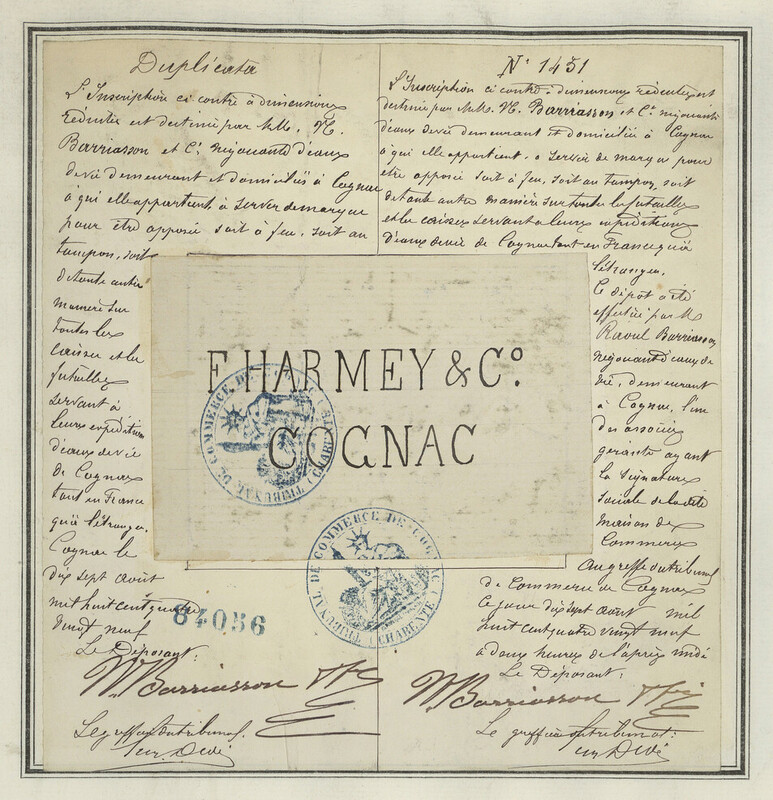 Duplicata
L'Inscription ci contre à dimensions
réduites est destinée par MM. H.
Barriasson et Cie négociants d'eaux
de vie demeurant et domiciliés à Cognac
à qui elle appartient, à servir de marque
pour être apposée soit à feu, soit au
tampon, soit
de toute autre
manière sur
toutes les
caisses et les
futailles
servant à
leurs expéditions
d'eaux de vie
de Cognac
tant en France
qu'à l'étranger.
Cognac le
dix sept août
mil huit cent quatre
vingt neuf
Le Déposant:
Barriasson
Le greffier du tribunal.
84056
N° 1451
L'Inscription ci contre à dimensions réduites est
destinée par MM. H. Barriasson et Cie négociants
d'eaux de vie demeurant et domiciliés à Cognac
à qui elle appartient, à servir de marque pour
être apposée soit à feu, soit au tampon, soit
de toute autre manière sur toutes les futailles
et les caisses servant à leurs expéditions
d'eaux de vie de Cognac tant en France qu'à
l'étranger.
Ce dépôt a été
effectué par M.
Raoul Barriasson
négociant d'eaux de
vie, demeurant
à Cognac, l'un
des associés
gérants ayant
la signature
sociale de la dite
maison de
Commerce
au greffe du tribunal
de Commerce de Cognac
ce jour dix sept août mil
huit cent quatre vingt neuf
à deux heures de l'après midi
Le Déposant:
Barriasson
Le greffier du tribunal:
F. HARMEY & Co.
COGNAC
TRIBUNAL DE COMMERCE DE COGNAC (CHARENTE)
TRIBUNAL DE COMMERCE DE COGNAC (CHARENTE)